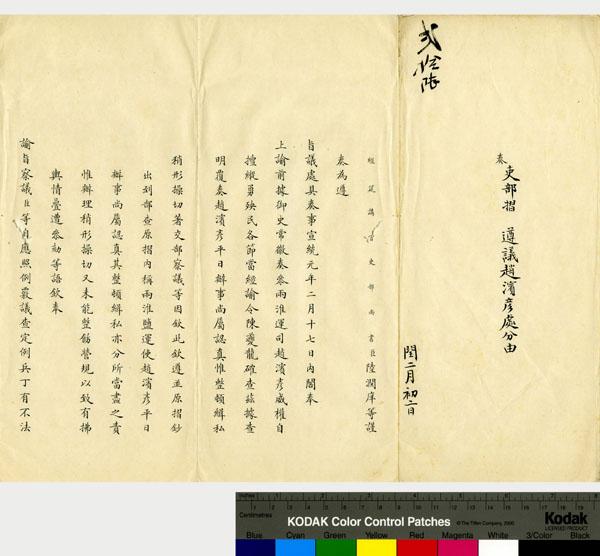 貳拾張
奏 吏部摺 遵議趙濱彥處分由
閏二月初二日
經筵講官吏部尚書臣陸潤庠等謹
奏為遵
旨議處具奏事宣統元年二月十七日內閣奉
上諭前據御史常徽奏參兩淮運司趙濱彥威權自
擅縱勇殃民各節當經諭令陳夔龍確查茲據查
明覆奏趙濱彥平日辦事尚屬認真惟整頓緝私
稍形操切著交部察議等因欽此欽遵並原摺鈔
出到部查原摺內稱兩淮鹽運使趙濱彥平日
辦事尚屬認真其整頓緝私亦分所當盡之責
惟辦理稍形操切又未能整飭營規以致有拂
輿情疊遭參劾等語欽奉
諭旨察議臣等自應照例覈議查定例兵丁有不法
inches
Centimetres
KODAK Color Control Patches
© The Tiffen Company, 2000
Kodak
LICENSED PRODUCT
Blue Cyan Green Yellow Red Magenta White 3/Color Black